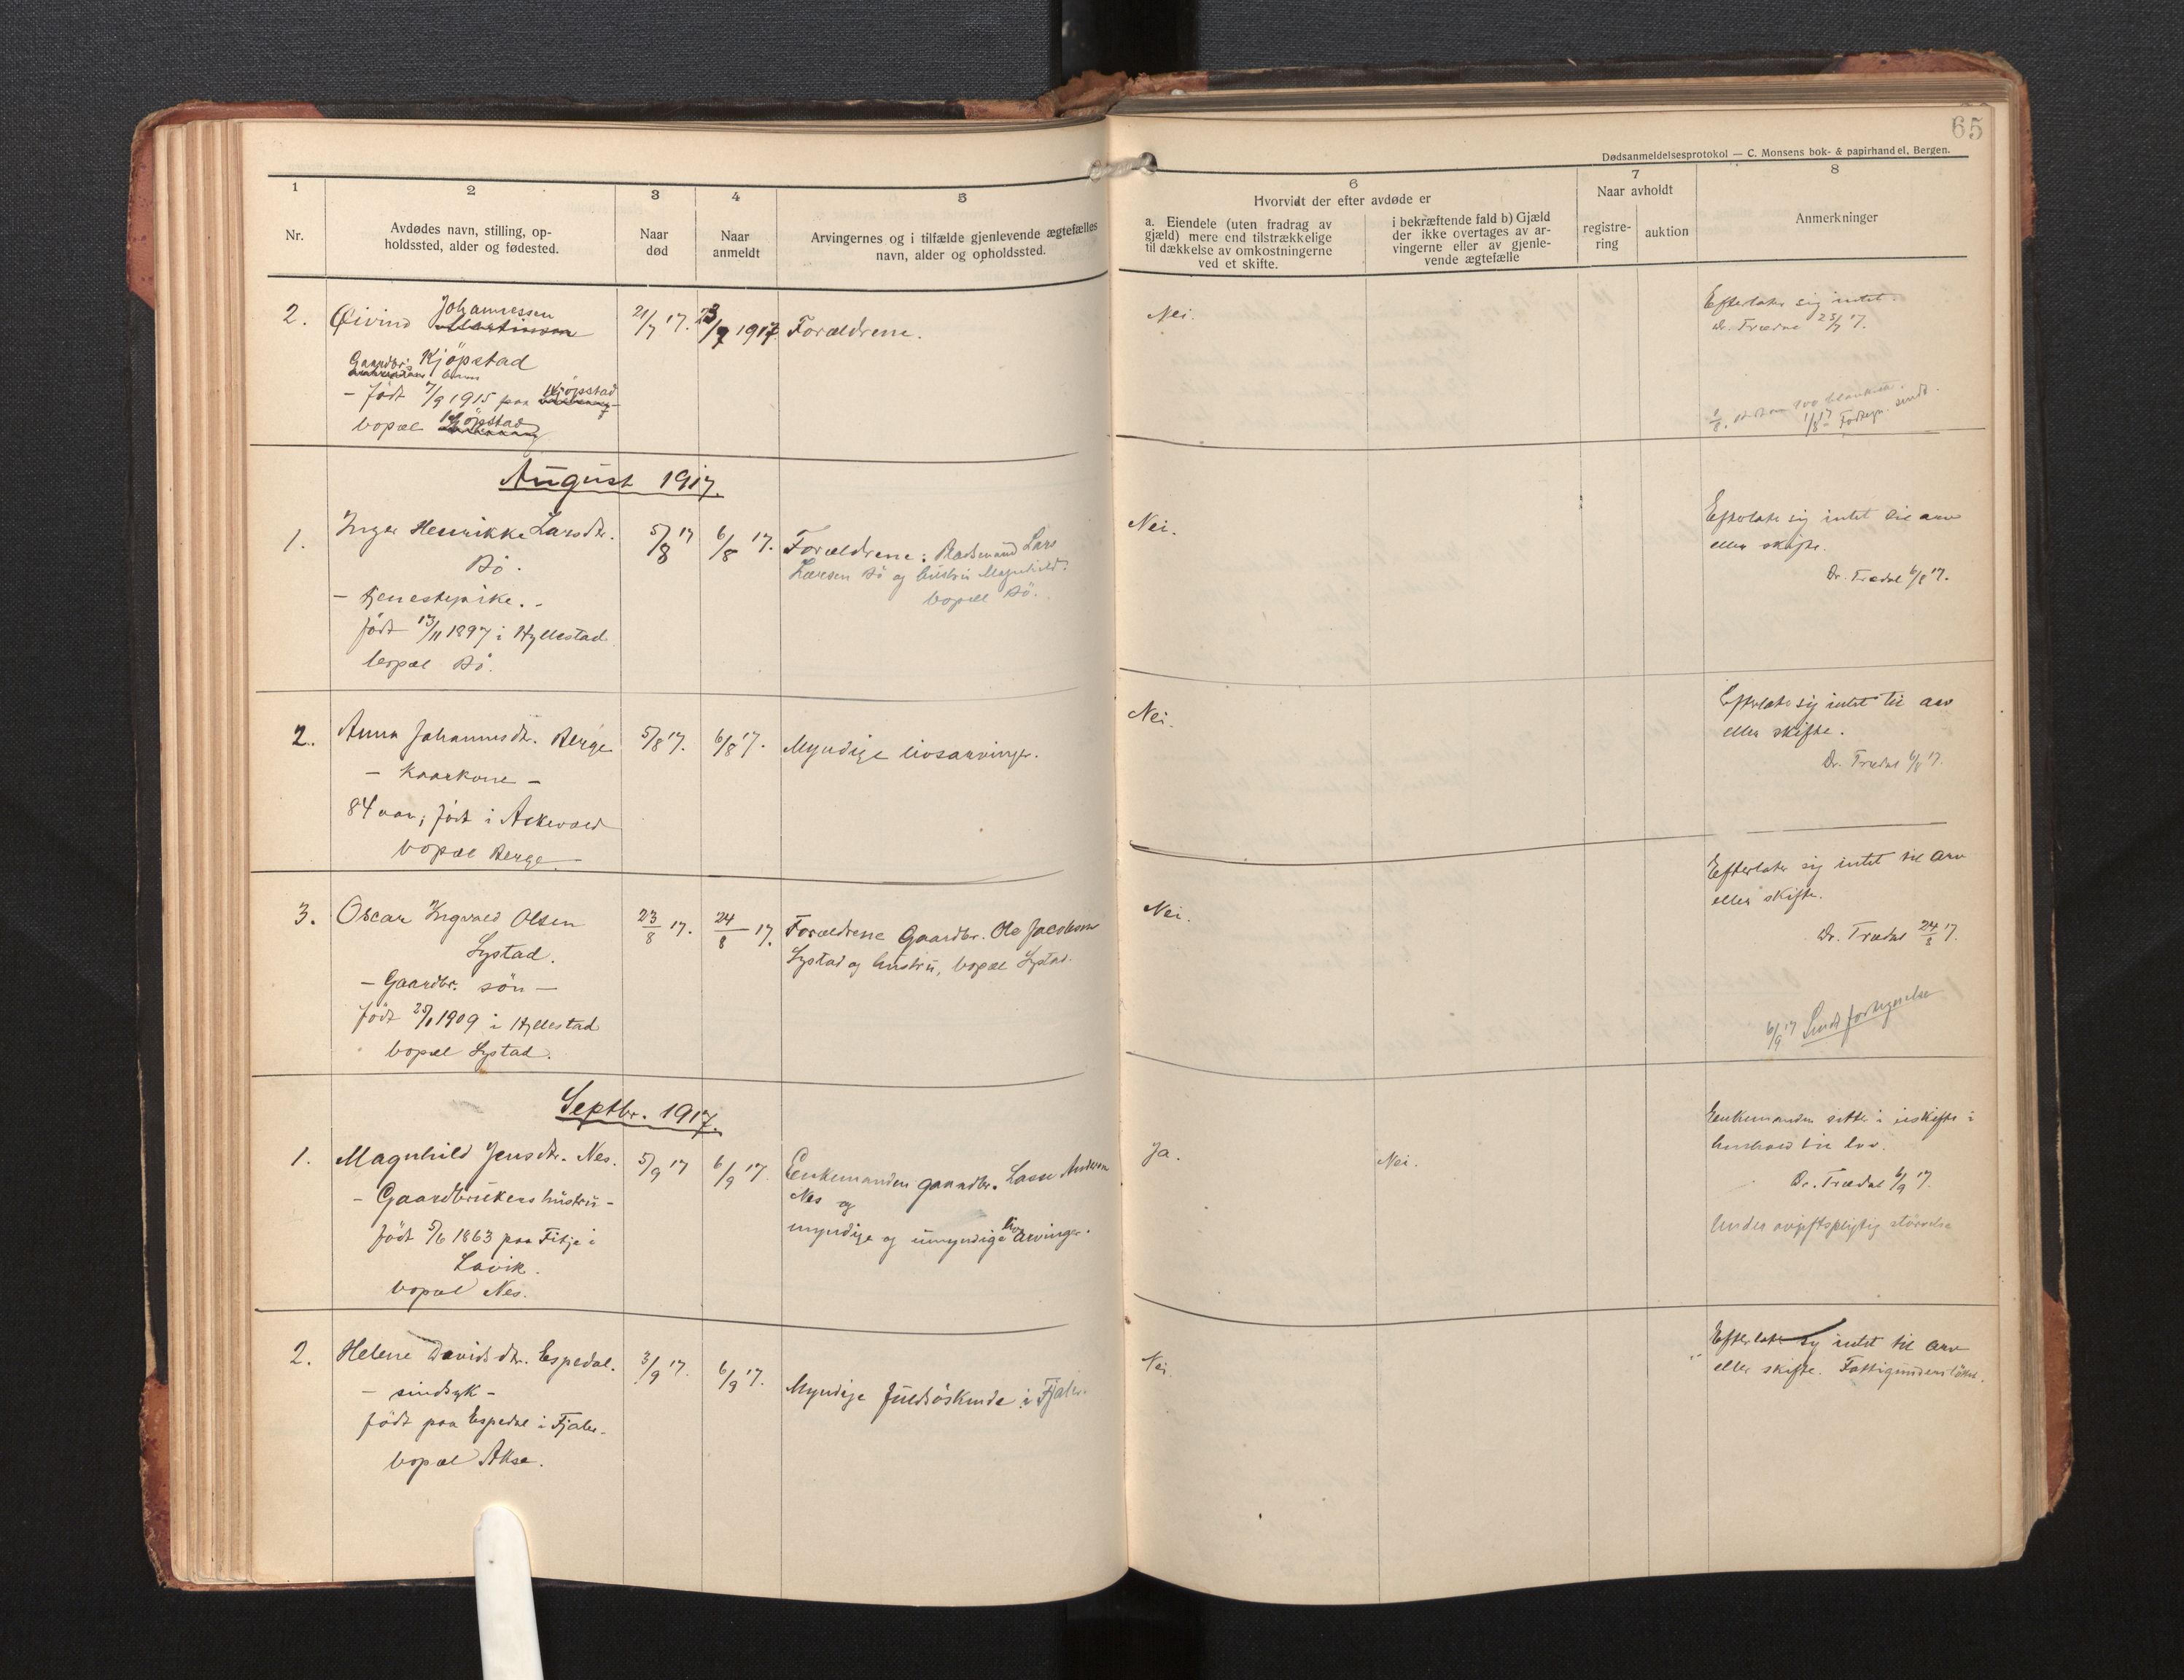 65
Dødsanmeldelsesprotokol — C. Monsens bok- & papirhandel, Bergen.
1
2
3
4
5
6
7
8
Nr.
Avdødes navn, stilling, op-
holdssted, alder og fødested.
Naar
død
Naar
anmeldt
Arvingernes og i tilfælde gjenlevende ægtefælles
navn, alder og opholdssted.
Hvorvidt der efter avdøde er
a. Eiendele (uten fradrag av
gjæld) mere end tilstrækkelige
til dækkelse av omkostningerne
ved et skifte.
i bekræftende fald b) Gjæld
der ikke overtages av ar-
vingerne eller av gjenle-
vende ægtefælle
Naar avholdt
registre-
ring
auktion
Anmerkninger
2. Øivind Johannessen
Gaardbr. Kjöpstad
- født 7/9 1915 paa Kjöpstad
bopæl Kjöpstad
21/7 17.
23/7 1917
Forældrene.
Nei.
Efterlater sig intet.
Dr. Trædal 23/7 17.
August 1917.
1. Inger Henrikke Larsdtr.
Bö.
- tjenestepike. -
født 17/11 1897 i Hyllestad
bopæl Bö.
5/8 17
6/8 17.
Forældrene: Lars
Larsen Bö og hustru Magnhild.
bopæl Bö.
Nei.
Efterlater sig intet til arv
eller skifte.
Dr. Trædal 6/8 17.
2. Anna Johannesdtr. Berge
- Kaarkone -
84 aar, født i Askvold
bopæl Berge
5/8 17.
6/8 17.
Myndige livsarvinger.
Nei.
Efterlater sig intet til arv
eller skifte.
Dr. Trædal 6/8 17.
3. Oscar Ingvald Olsen
Systad.
- Gaardbr. sön -
født 1909 i Hyllestad
bopæl Systad.
23/8 17.
24/8 17.
Forældrene Gaardbr. Ole Jacobsen
Systad og hustru, bopæl Systad.
Nei.
Efterlater sig intet til arv
eller skifte.
Dr. Trædal 24/8 17.
6/9 17 Sendt fortegnelse
Septbr. 1917.
1. Magnhild Jensdtr. Nes.
- Gaardbrukers hustru -
født 5/6 1863 paa Fitje i
Lavik.
bopæl Nes.
5/9 17
6/9 17.
Enkemanden gaardbr. Lasse Andersen
Nes og
myndige og umyndige livsarvinger.
Ja.
Nei.
Enkemanden sitter i uskifte i
henhold til lov.
Dr. Trædal 6/9 17.
Under avgiftspligtig störrelse
2. Helene Davidsdtr. Espedal.
- sindsyk -
født paa Espedal i Fjaler.
bopæl Akse.
3/9 17.
6/9 17.
Myndige fuldsöskende i Fjaler.
Nei.
Efterlater sig intet til arv
eller skifte. Fattigunderstöttet.